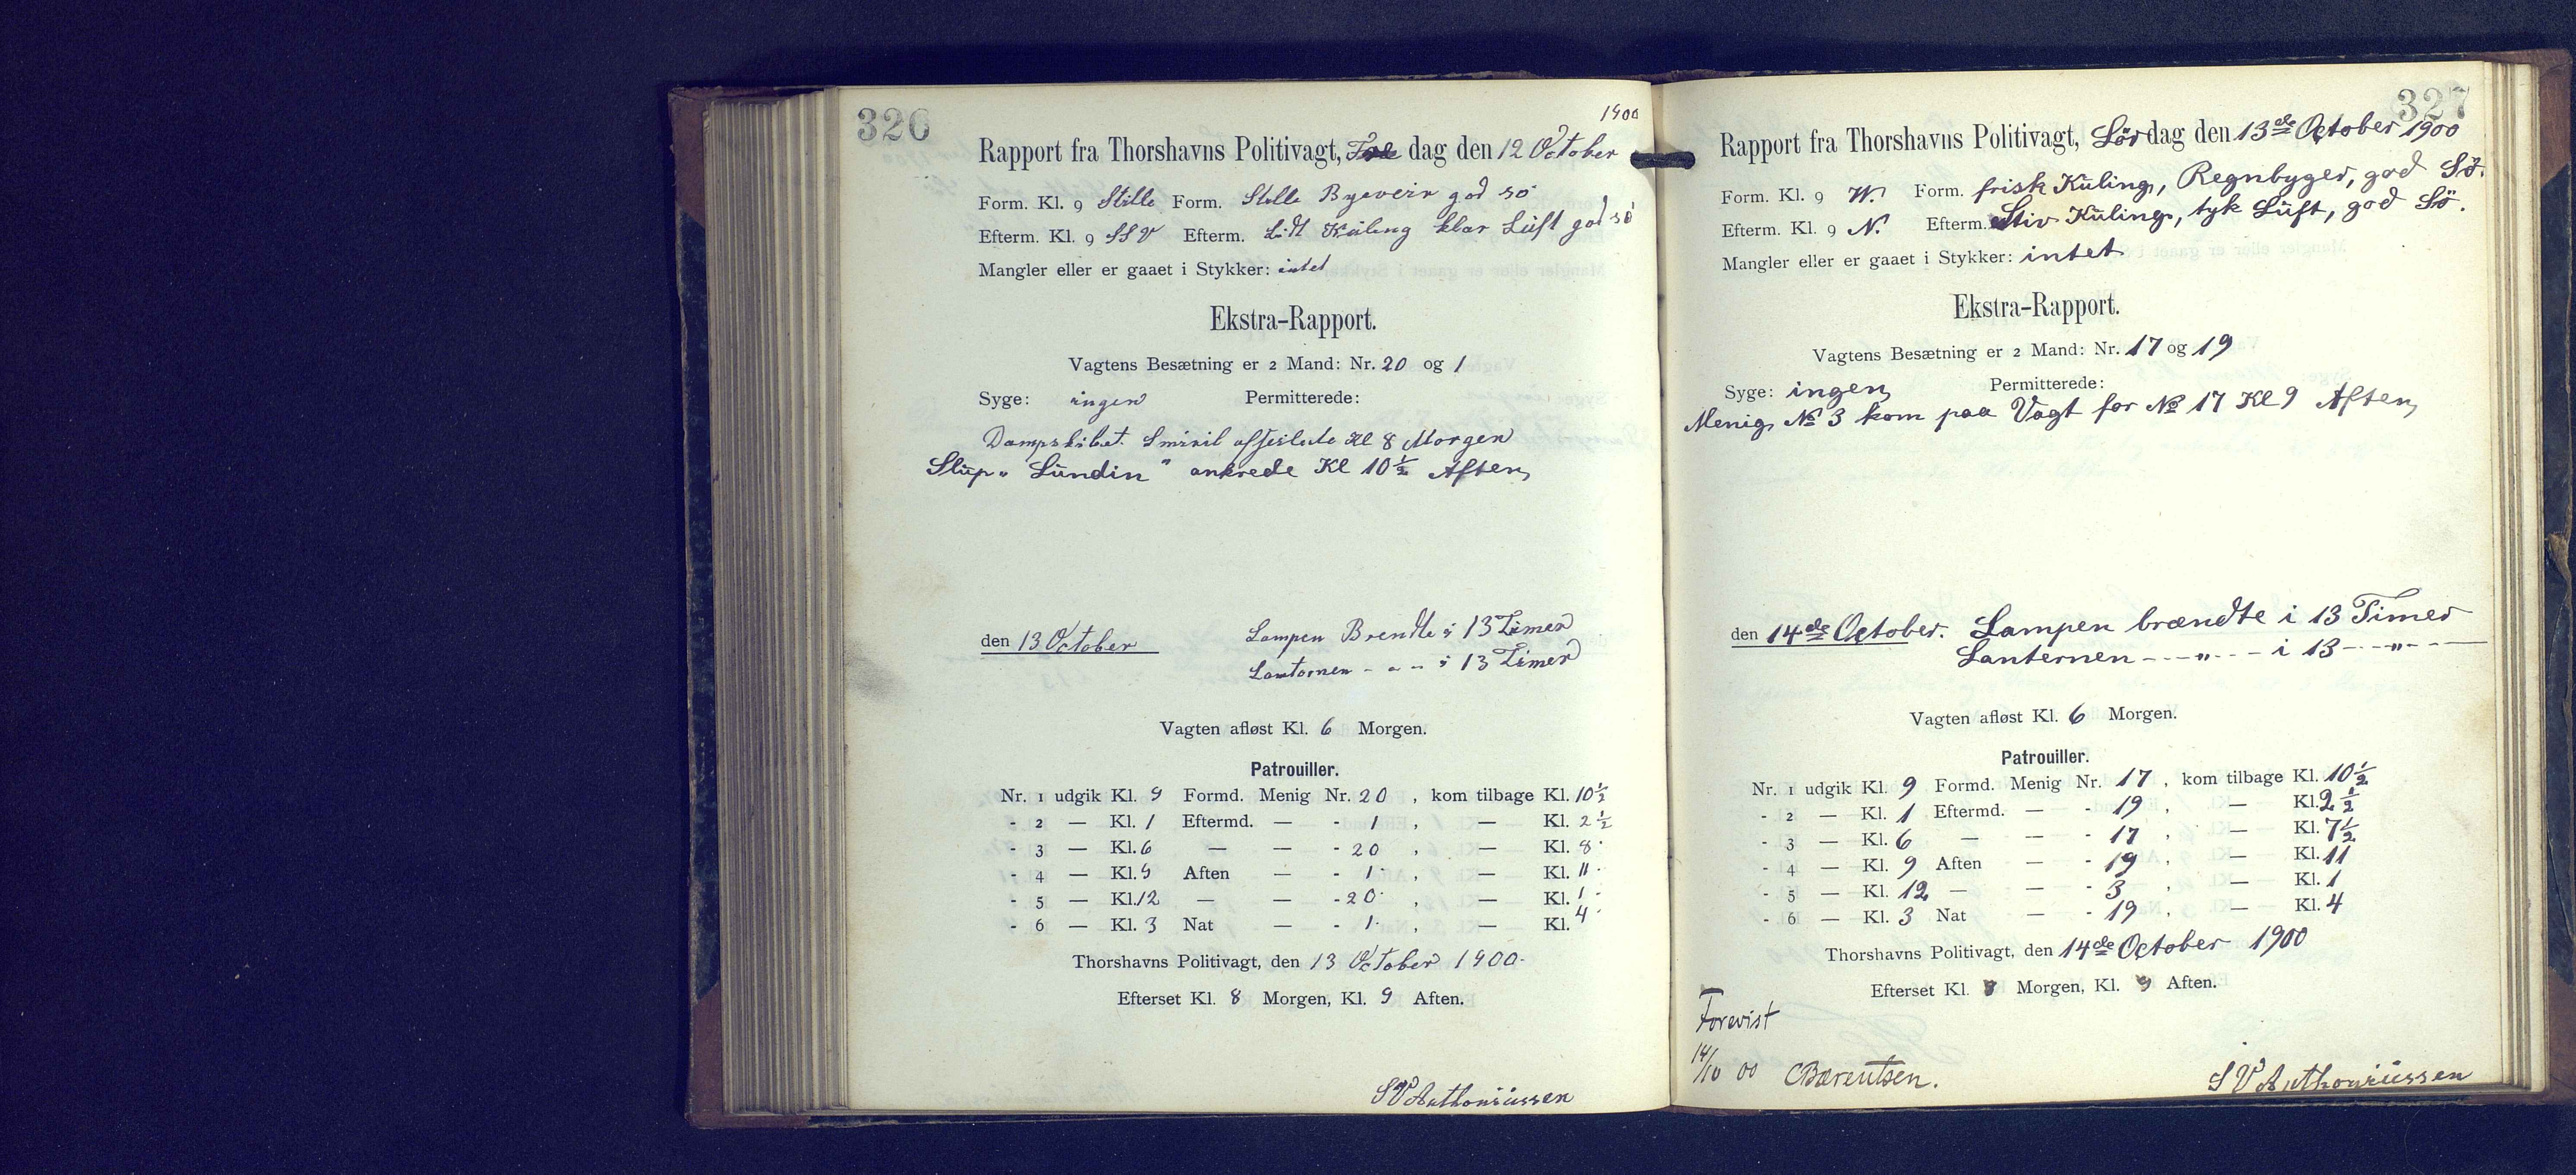 326
1900
Rapport fra Thorshavns Politivagt, Fre dag den 12 October
Form. Kl. 9 Stille Form. Stille Byeveir god sö
Efterm. Kl. 9 SSV Efterm. Lidt Kuling klar Luft god sö
Mangler eller er gaaet i Stykker: intet
Ekstra-Rapport.
Vagtens Besætning er 2 Mand: Nr. 20 og 1
Syge: ingen Permitterede:
Dampskibet Smiril afseilede Kl 8 Morgen
Slup „Lundin" ankrede Kl 10 1/2 Aften
den 13 October Lampen Brendte i 13 Timer
Lanternen - „ - i 13 Timer
Vagten afløst Kl. 6 Morgen.
Patrouiller.
Nr. 1 udgik Kl. 9 Formd. Menig Nr. 20 , kom tilbage Kl. 10 1/2
- 2 — Kl. 1 Eftermd. — - 1 , — Kl. 2 1/2
- 3 — Kl. 6 — — - 20 , — Kl. 8
- 4 — Kl. 9 Aften — - 1 , — Kl. 11
- 5 — Kl. 12 — — - 20 , — Kl. 1
- 6 — Kl. 3 Nat — - 1 , — Kl. 4
Thorshavns Politivagt, den 13 October 1900.
Efterset Kl. 8 Morgen, Kl. 9 Aften.
SV Anthoniussen
327
Rapport fra Thorshavns Politivagt, Lör dag den 13de October 1900
Form. Kl. 9 W. Form. frisk Kuling, Regnbyger, god Sö.
Efterm. Kl. 9 N. Efterm. Stiv Kuling, tyk Luft, god Sö.
Mangler eller er gaaet i Stykker: intet
Ekstra-Rapport.
Vagtens Besætning er 2 Mand: Nr. 17 og 19
Syge: ingen Permitterede:
Menig No 3 kom paa Vagt for No 17 Kl 9 Aften
den 14de October. Lampen brændte i 13 Timer
Lanternen - - „ - - i 13 - - „ - -
Vagten afløst Kl. 6 Morgen.
Patrouiller.
Nr. 1 udgik Kl. 9 Formd. Menig Nr. 17 , kom tilbage Kl. 10 1/2
- 2 — Kl. 1 Eftermd. — - 19 , — Kl. 2 1/2
- 3 — Kl. 6 — — - 17 , — Kl. 7 1/2
- 4 — Kl. 9 Aften — - 19 , — Kl. 11
- 5 — Kl. 12 — — - 3 , — Kl. 1
- 6 — Kl. 3 Nat — - 19 , — Kl. 4
Thorshavns Politivagt, den 14de October 1900
Efterset Kl. 8 Morgen, Kl. 9 Aften.
Forevist
14/10 00 CBærentsen.
SV Anthoniussen